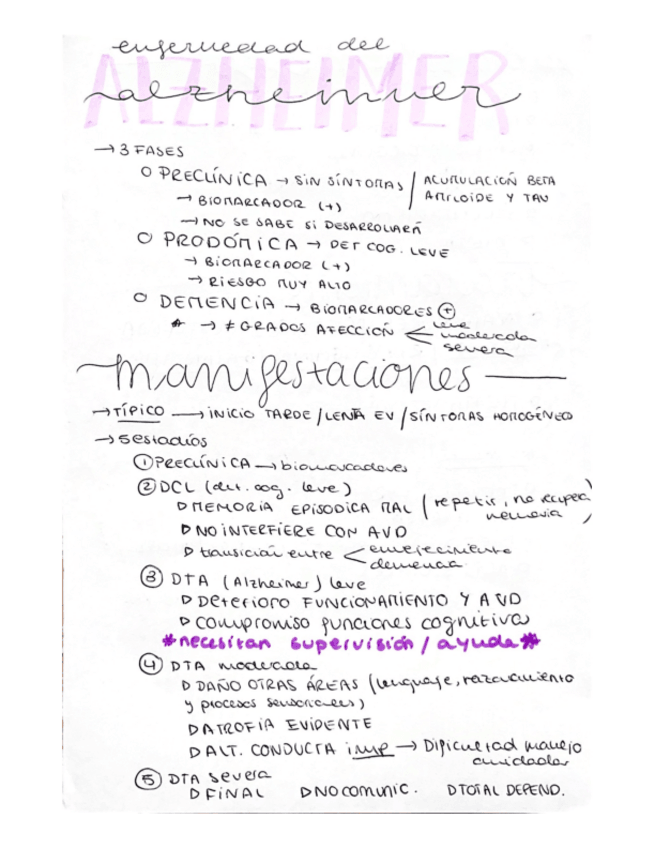 enfermedad del
ALZHEIMER
alzheimer
→ 3 FASES
O PRECLÍNICA → SIN SÍNTOMAS / ACUMULACIÓN BETA
AMILOIDE Y TAU
→ BIOMARCADOR (+)
→ NO SE SABE SI DESARROLLARÁ
O PRODÓMICA → DET COG. LEVE
→ BIOMARCADOR (+)
→ RIESGO MUY ALTO
O DEMENCIA → BIOMARCADORES (+)
* → ≠ GRADOS AFECCIÓN < leve
moderada
severa
manifestaciones
→ TÍPICO → INICIO TARDE / LENTA EV / SÍNTOMAS HOMOGÉNEO
→ 5 estadíos
① PRECLÍNICA → biomarcadores
② DCL (det. cog. leve)
▷ MEMORIA EPISODICA MAL (repetir, no recupera
memoria)
▷ NO INTERFIERE CON AVD
▷ transición entre < envejecimiento
demencia
③ DTA (Alzheimer) leve
▷ Deterioro FUNCIONAMIENTO Y AVD
▷ compromiso funciones cognitiva
*necesitan supervisión / ayuda*
④ DTA moderada
▷ DAÑO OTRAS ÁREAS (lenguaje, razonamiento
y procesos sensoriales)
▷ ATROFIA EVIDENTE
▷ ALT. CONDUCTA imp → Dificultad manejo
cuidador
⑤ DTA severa
▷ FINAL ▷ NO comunic. ▷ TOTAL DEPEND.